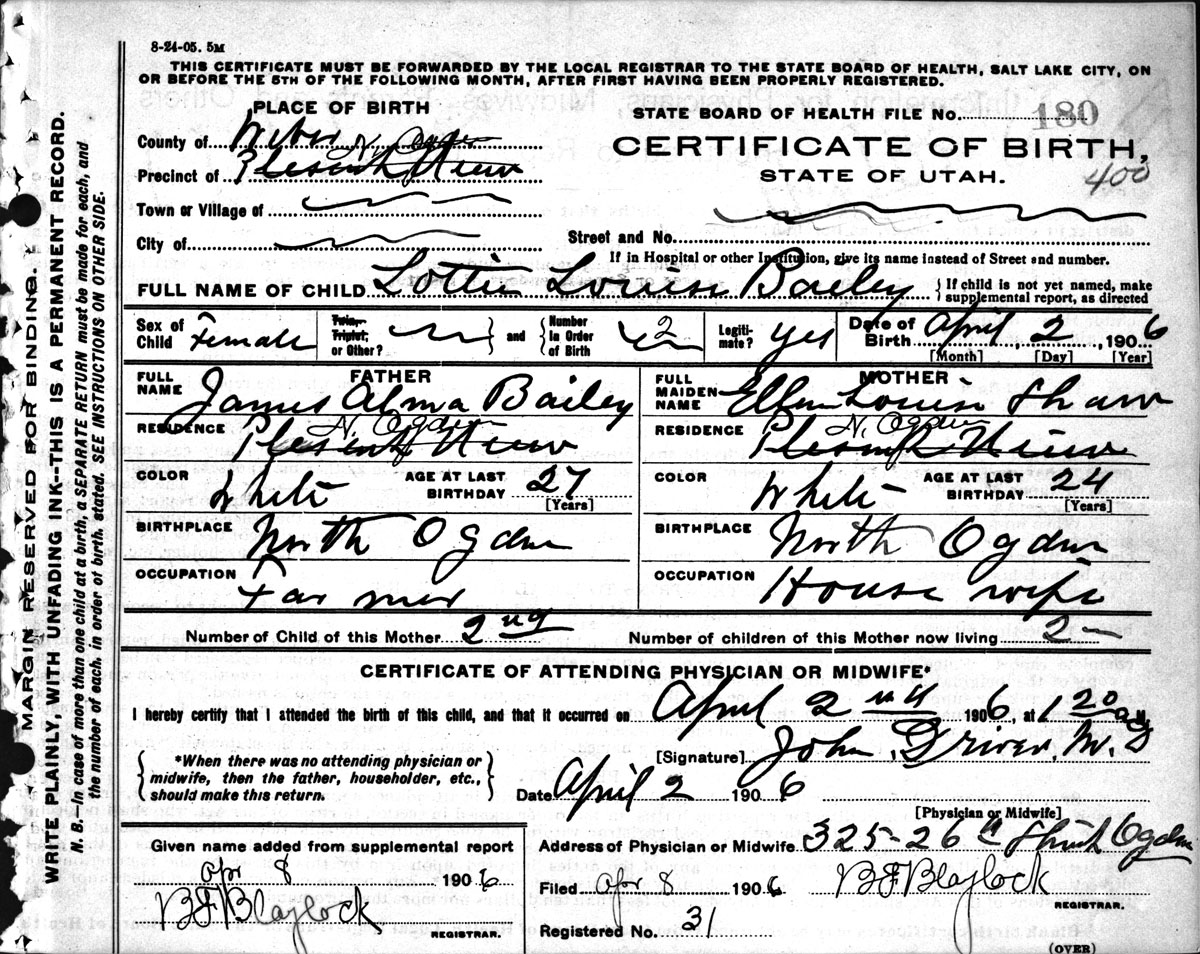 8-24-05. 5M
THIS CERTIFICATE MUST BE FORWARDED BY THE LOCAL REGISTRAR TO THE STATE BOARD OF HEALTH, SALT LAKE CITY, ON
OR BEFORE THE 5TH OF THE FOLLOWING MONTH, AFTER FIRST HAVING BEEN PROPERLY REGISTERED.
PLACE OF BIRTH
STATE BOARD OF HEALTH FILE No. 180
County of Weber
N. Ogden
CERTIFICATE OF BIRTH,
Precinct of Plesent View
STATE OF UTAH.
400
Town or Village of
City of
Street and No.
If in Hospital or other Institution, give its name instead of Street and number.
FULL NAME OF CHILD Lottie Louise Bailey { If child is not yet named, make
supplemental report, as directed
Sex of Child Female Twin, Triplet, or Other? } and { Number In Order of Birth 2 Legiti- mate? yes Date of Birth April, 2, 1906
[Month] [Day] [Year]
FATHER
FULL NAME James Alma Bailey
RESIDENCE N. Ogden
Plesent View
COLOR White AGE AT LAST BIRTHDAY 27
[Years]
BIRTHPLACE North Ogden
OCCUPATION Farmer
MOTHER
FULL MAIDEN NAME Ellen Louise Shaw
RESIDENCE N. Ogden
Plesent View
COLOR White AGE AT LAST BIRTHDAY 24
[Years]
BIRTHPLACE North Ogden
OCCUPATION House wife
Number of Child of this Mother 2nd Number of children of this Mother now living 2
CERTIFICATE OF ATTENDING PHYSICIAN OR MIDWIFE*
I hereby certify that I attended the birth of this child, and that it occurred on April 2nd 1906, at 1 20
[Signature] John Driver, M.D
{ *When there was no attending physician or
midwife, then the father, householder, etc.,
should make this return. }
Date April 2 1906
[Physician or Midwife]
Given name added from supplemental report
Apr 8 1906
BF Blaylock
REGISTRAR.
Address of Physician or Midwife 325-26th Street Ogden
Filed Apr 8 1906 BF Blaylock
REGISTRAR.
Registered No. 31
(OVER)
MARGIN RESERVED FOR BINDING.
WRITE PLAINLY, WITH UNFADING INK--THIS IS A PERMANENT RECORD.
N. B.--In case of more than one child at a birth, a SEPARATE RETURN must be made for each, and
the number of each, in order of birth, stated. SEE INSTRUCTIONS ON OTHER SIDE.